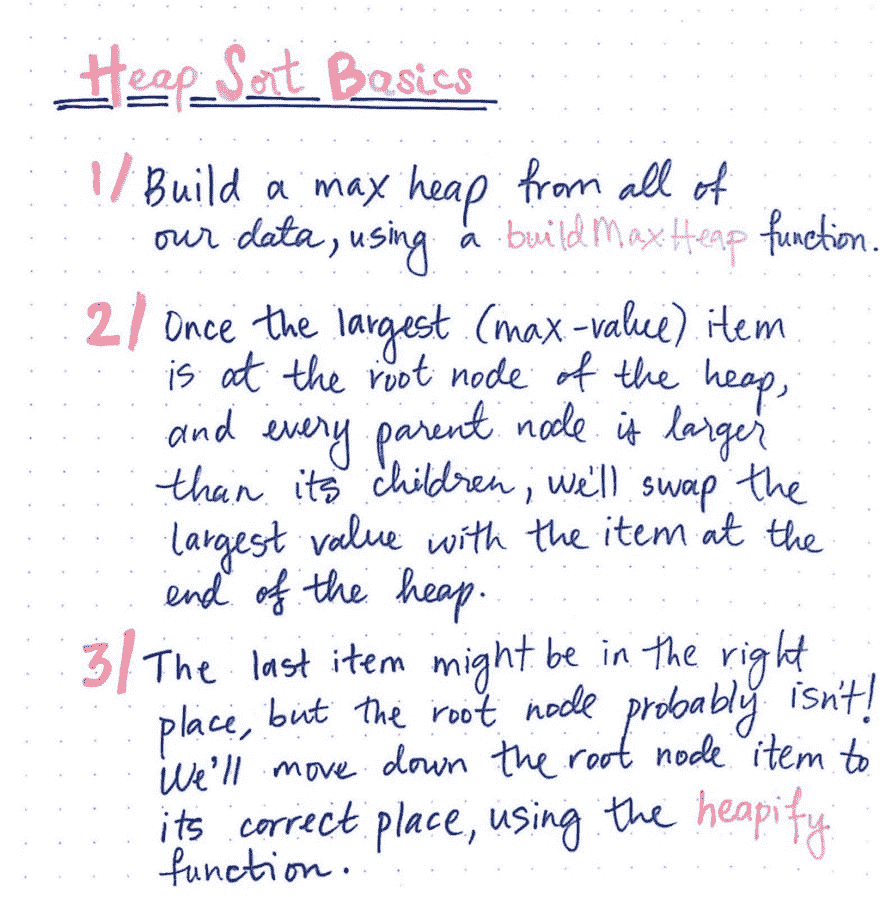 Heap Sort Basics
1/ Build a max heap from all of
our data, using a buildMaxHeap function.
2/ Once the largest (max-value) item
is at the root node of the heap,
and every parent node is larger
than its children, we'll swap the
largest value with the item at the
end of the heap.
3/ The last item might be in the right
place, but the root node probably isn't!
We'll move down the root node item to
its correct place, using the heapify
function.